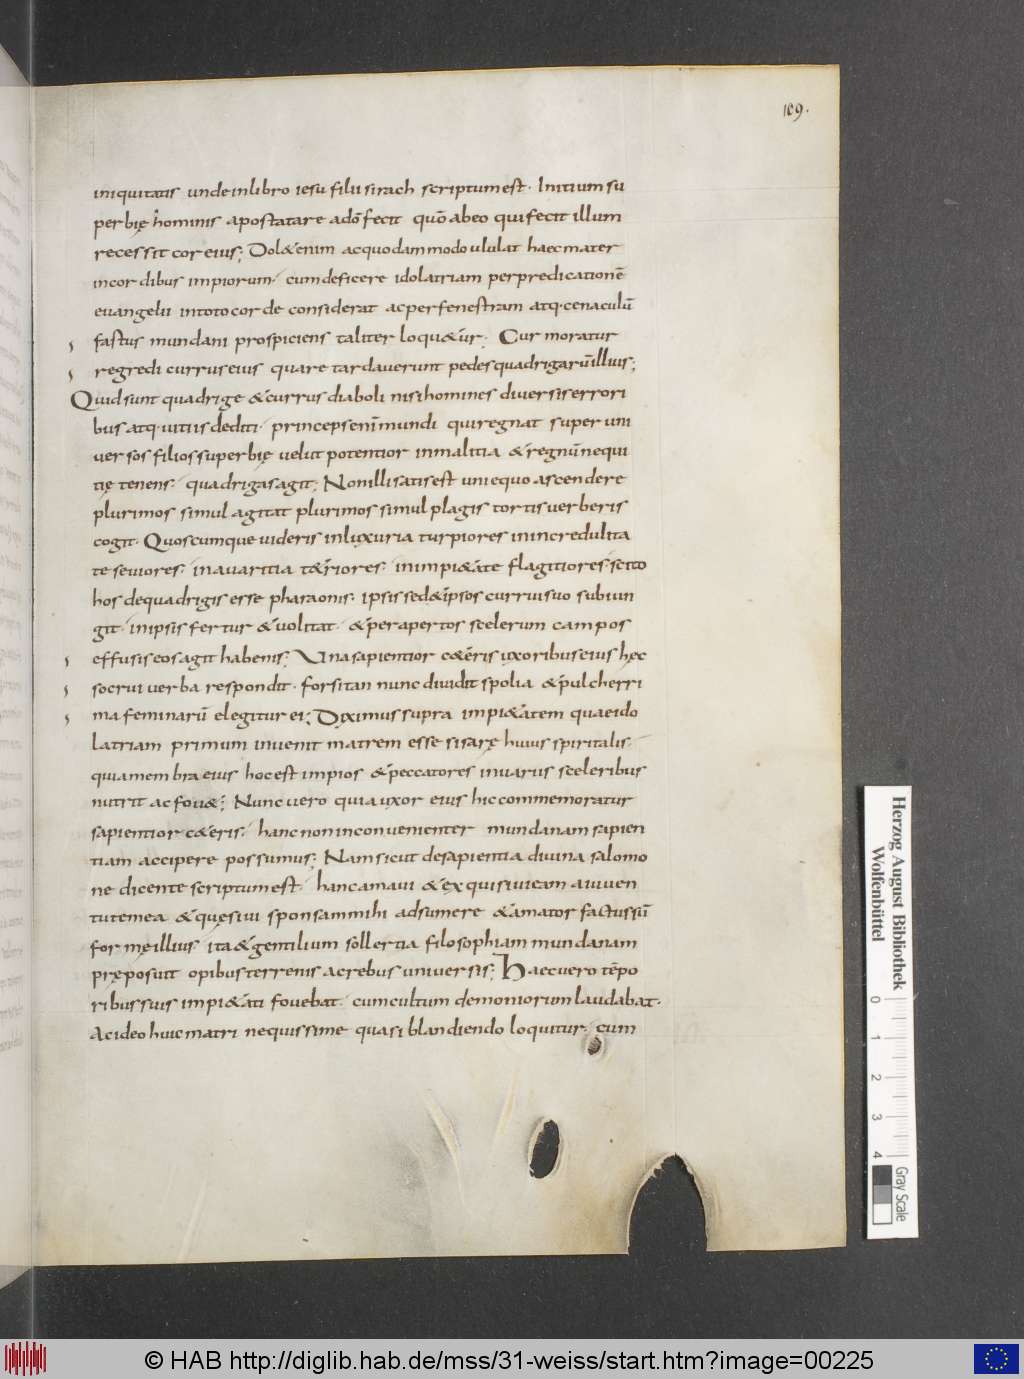 109.
iniquitatis unde in libro iesu filii sirach scriptum est· Initium su
perbię hominis apostatare a dō fecit quō ab eo qui fecit illum
recessit cor eius; Dol&enim ac quodammodo ululat haec mater
in cordibus impiorum· cum deficere idolatriam per predicationē
euangelii in toto corde considerat ac per fenestram atq· cenaculū
fastus mundani prospiciens taliter loqu&ur; Cur moratur
regredi currus eius quare tardaverunt pedes quadrigarū illius;
Quid sunt quadrige & currus diaboli nisi homines diversis errori
bus atq· vitiis dediti· princeps enī mundi qui regnat super uni
versos filios superbię velut potentior in malitia & regnū nequi
tię tenens· quadrigas agit; Non illi satis est uni equo ascendere
plurimos simul agitat plurimos simul plagis tortis verberis
cogit· Quoscumque videris in luxuria turpiores in incredulita
te seviores· in avaritia t&riores· in impi&ate flagitiores· scito
hos de quadrigis esse pharaonis· ipsis sed& ipsos currui suo subiun
git· in ipsis fertur & volitat· & per apertos scelerum campos
effusis eos agit habenis; Una sapientior c&eris uxoribus eius hęc
socrui verba respondit· forsitan nunc dividit spolia & pulcherri
ma feminarū elegitur ei; Diximus supra impi&atem quae ido
latriam primum invenit matrem esse sisarę huius spiritalis·
quia membra eius hoc est impios & peccatores in variis sceleribus
nutrit ac fov&; Nunc vero quia uxor eius hic commemoratur
sapientior c&eris· hanc non inconvenienter mundanam sapien
tiam accipere possumus; Nam sicut de sapientia divina salomo
ne dicente scriptum est· hanc amavi & exquisivi eam a iuven
tute mea & quęsivi sponsam mihi adsumere & amator factus sū
formę illius ita & gentilium sollertia filosophiam mundanam
pręposuit opibus terrenis ac rebus universis; Haec vero tēpo
ribus suis impi&ati fovebat· cum cultum demoniorum laudabat·
Ac ideo huic matri nequissime quasi blandiendo loquitur· cum
Herzog August Bibliothek
Wolfenbüttel
0 1 2 3 4
Gray Scale
© HAB http://diglib.hab.de/mss/31-weiss/start.htm?image=00225